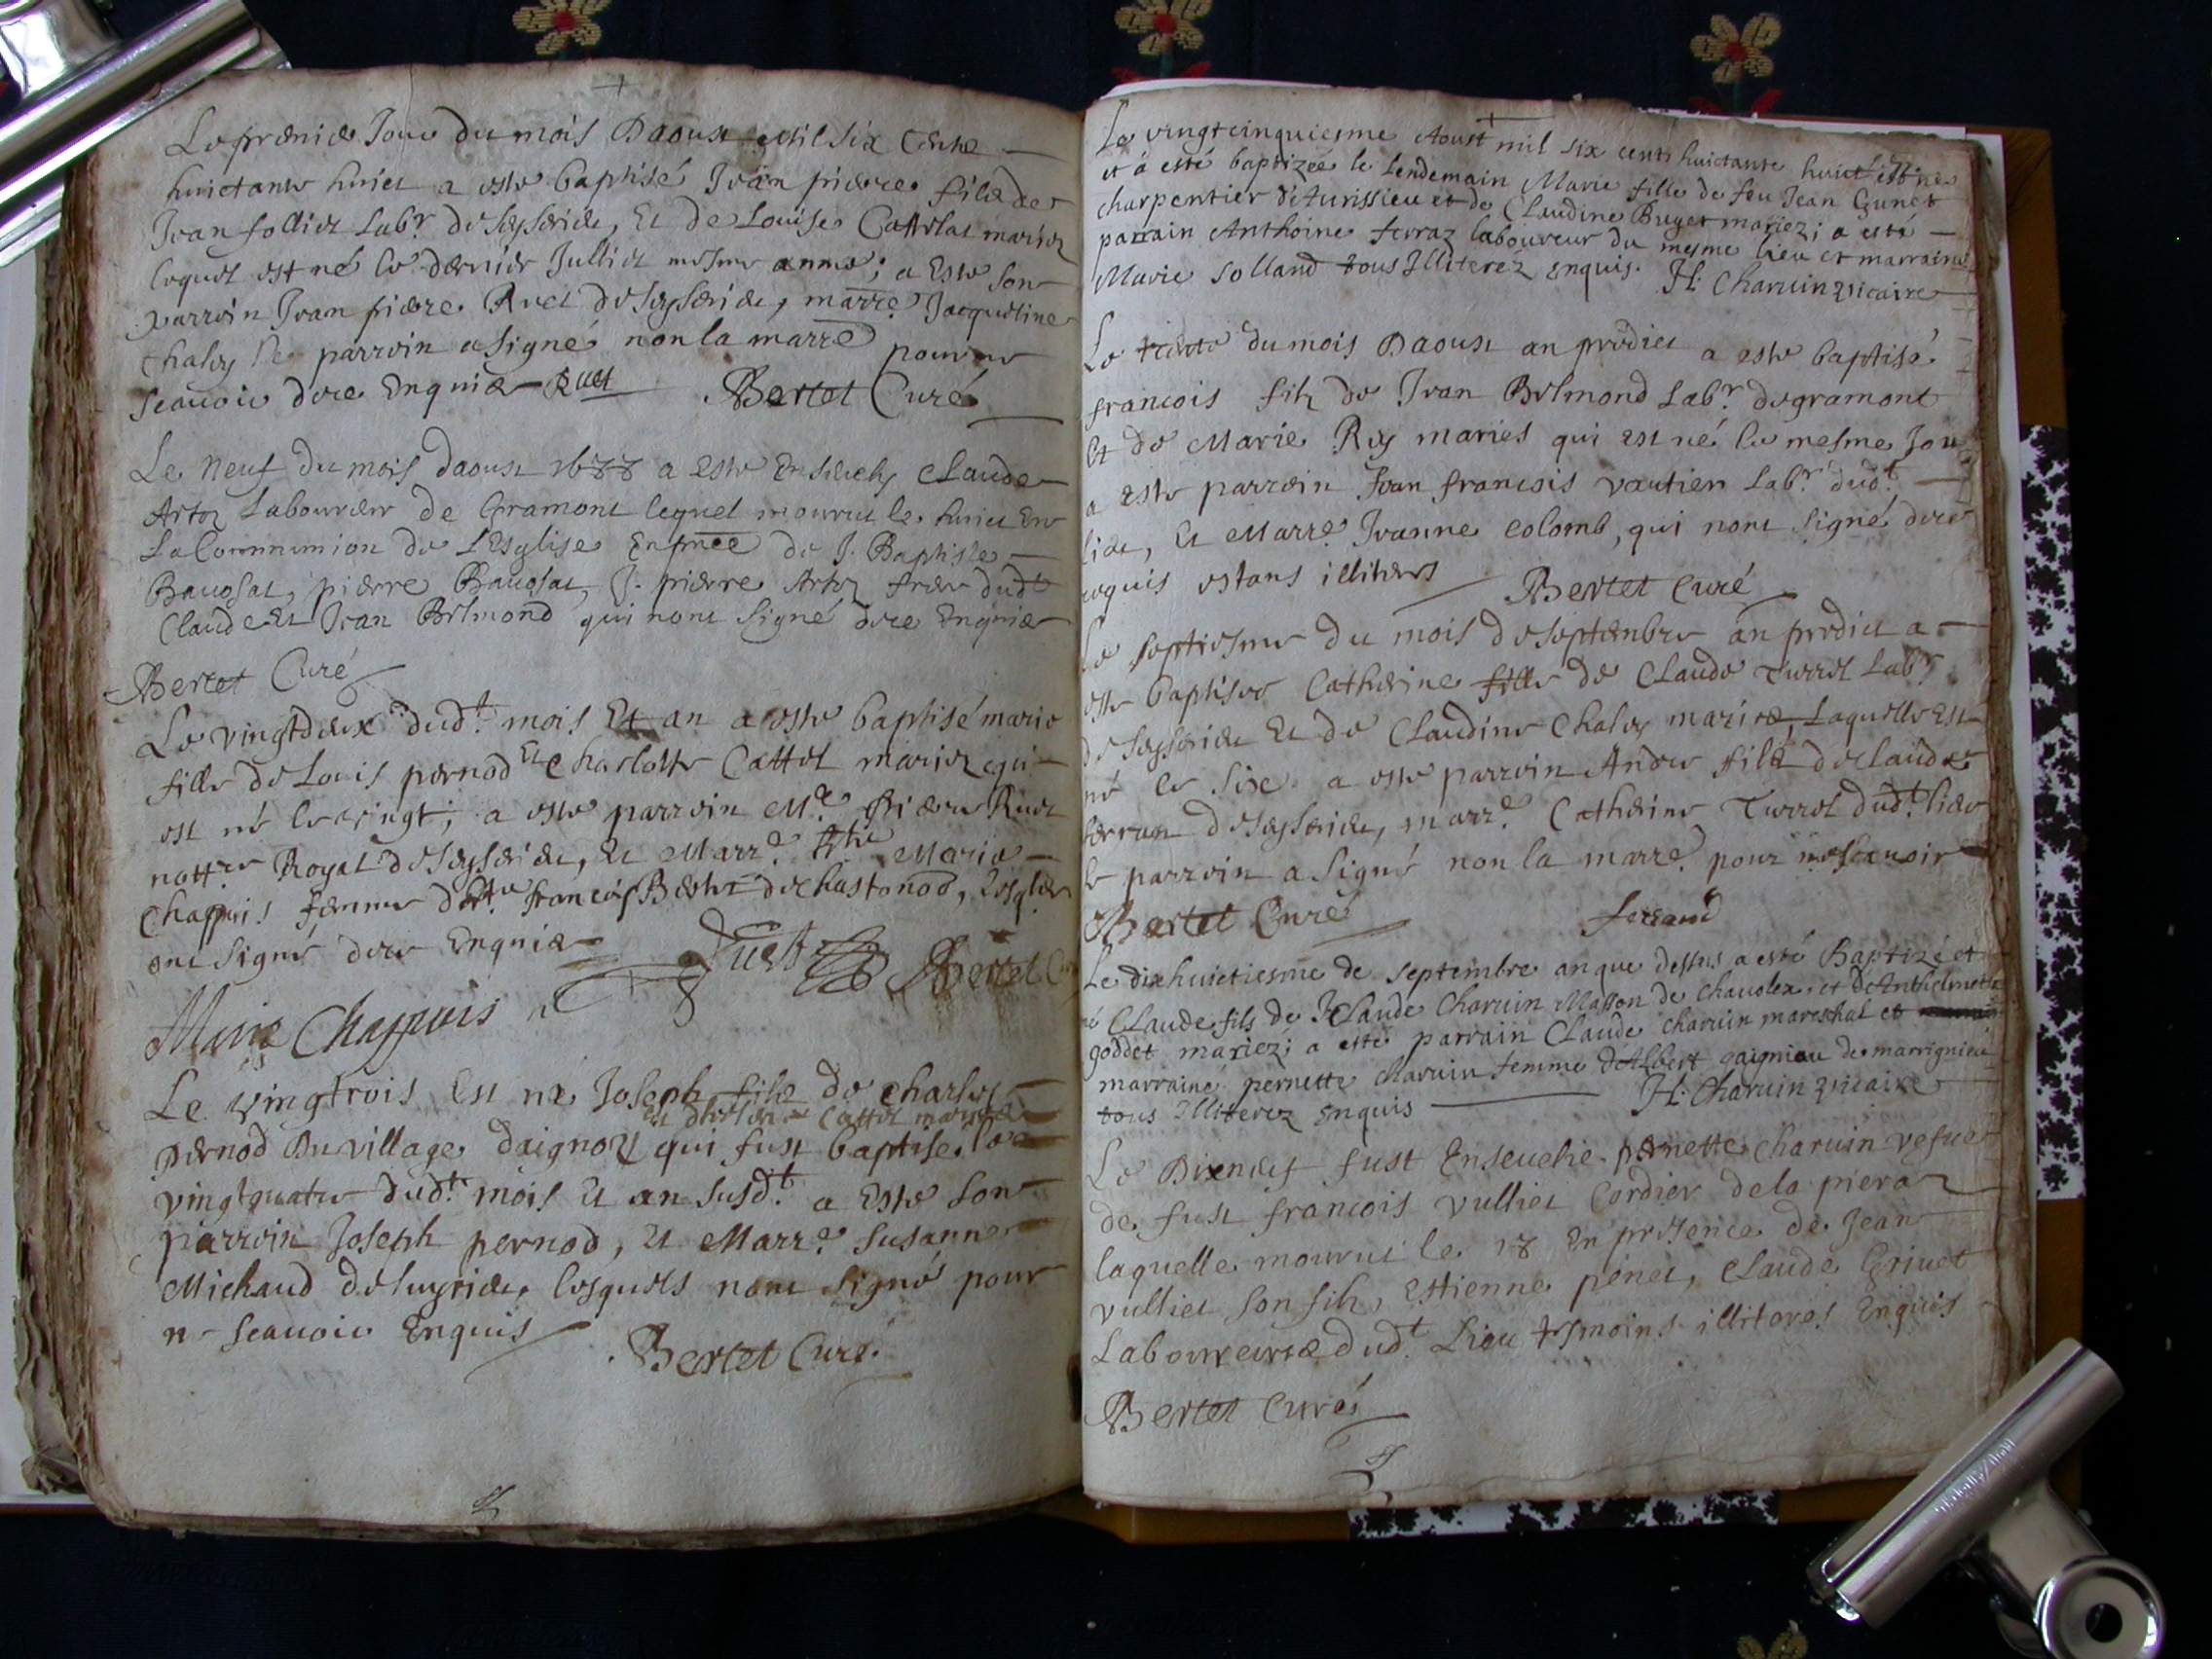 Le premier Jour du mois Daoust Mil six Cents
huictante huict a este baptisé Jean pierre fils de
Jean folliet Lab.r de seyserieu, Et de Louise mariez
lequel est né le dernier Julliet mesme anneé; a Este son
parrein Jean pierre Ruet de seyserieu, marre Jacqueline
Chaley le parrein a signé non la marre pour ne
scauoir dere Enquise Ruet Bertet Curé
Le neuf du mois daoust 1688 a Este Enseuely Claude
Artoz Laboureur de Gramont lequel mourut le huict En
La Communion de L'Esglise En pnce de J. Baptiste
pierre J. pierre Artoz frere dud.t
Claude Et Jean Belmond qui nont signé dere Enquis
Bertet Curé
Le vingtdeux dud.t mois Et an a este baptisé marie
fille de Louis pernod Et Charlotte Cattet mariez qui
est né le vingt; a este parrein M.e pierre Ruet
nott.re Royal de seyserieu, Et Marr.e Marie
Chappuis femme francois de chastonod,
ont signé dere Enquis
Ruet Bertet
Marie Chappuis
Le vingtrois Est né Joseph fils de Charles
Et Cattet mariez
pernod Du village daignoz qui fust baptisé le
vingtquatre dud.t mois Et an susd.t a Este son
parrein Joseph pernod, Et Marr.e susanne
Michaud de luyrieu lesquels nont signé pour
ne scauoir Enquis Bertet Curé.
Le vingtcinquiesme Aoust mil six cents huictante huict est née
et à esté baptizeé le Lendemain Marie fille de feu Jean Gunet
charpentier d'Aurissieu et de Claudine Buget mariez; a esté
parrain Anthoine ferraz laboureur du mesme lieu et marraine
Marie solland tous Illiterez enquis. H: Charuin vicaire
Le trente du mois Daoust an predict a este baptisé
francois filz de Jean Belmond Lab.r de gramont
Et de Marie Rey mariés qui est né le mesme Jour
a este parrein Jean francois vautier Lab.r dud.t
lieu, Et Marr.e Jeanne colomb, qui nont signé dere
enquis estans illiteres Bertet Curé
Le septiesme du mois de septembre an predict a
este baptisee Catherine fille de Claude Turrel Lab.r
de seyserieu Et de Claudine Chaley mariez, Laquelle est
né le six. a este parrein Andre fils de claude
ferran de seyserieu, marr.e Catherine Turrel dud.t lieu
le parrein a signé non la marre pour ne scauoir
Bertet Curé ferrand
Le dixhuictiesme de septembre an que dessus a esté Baptizé et
né Claude fils de Claude Charuin Masson de Chauolex et d'Anthelmette
goddet mariez; a esté parrain Claude charuin mareschal et
marraine pernette charuin femme d'Albert gaigniau de marrignieu
tous Illiterez enquis H: Charuin vicaire
Le Dixneuf fust Enseuelie pernette Charuin vefue
de fust francois vulliet Cordier de la pieraz
laquelle mourut le 18 En presence de Jean
vulliet son filz, Estienne penet, Claude Griuet
Laboureurs dud.t Lieu tesmoins illiteres Enquis
Bertet Curé